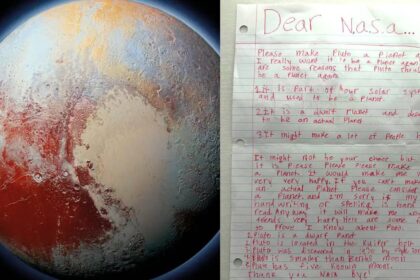 Dear Nasa...
Please make Pluto a planet a
I really want it to be a Planet again
are some reasons that Pluto sho
be a planet again
1. It is part of our solar syst
and used to be a Planet.
2. It is a dwarf Planet and des
to be an actual Planet
3. It might make a lot of People
It might not be your choice but
it is Please Please Please make
a Planet. It would make me v
very very happy. If you can't mak
an actual Planet Please conside
a Planet, and I'm sorry if my
hand writing or spelling is hard
read. Any way it will make me a
friends very happy. Here are some
to Prove I know about
Pluto is a dwarf
Pluto is located in the Kuiper
Pluto was discovered in
is smaller than Earths moon
has five known moons.
Thank you bye!